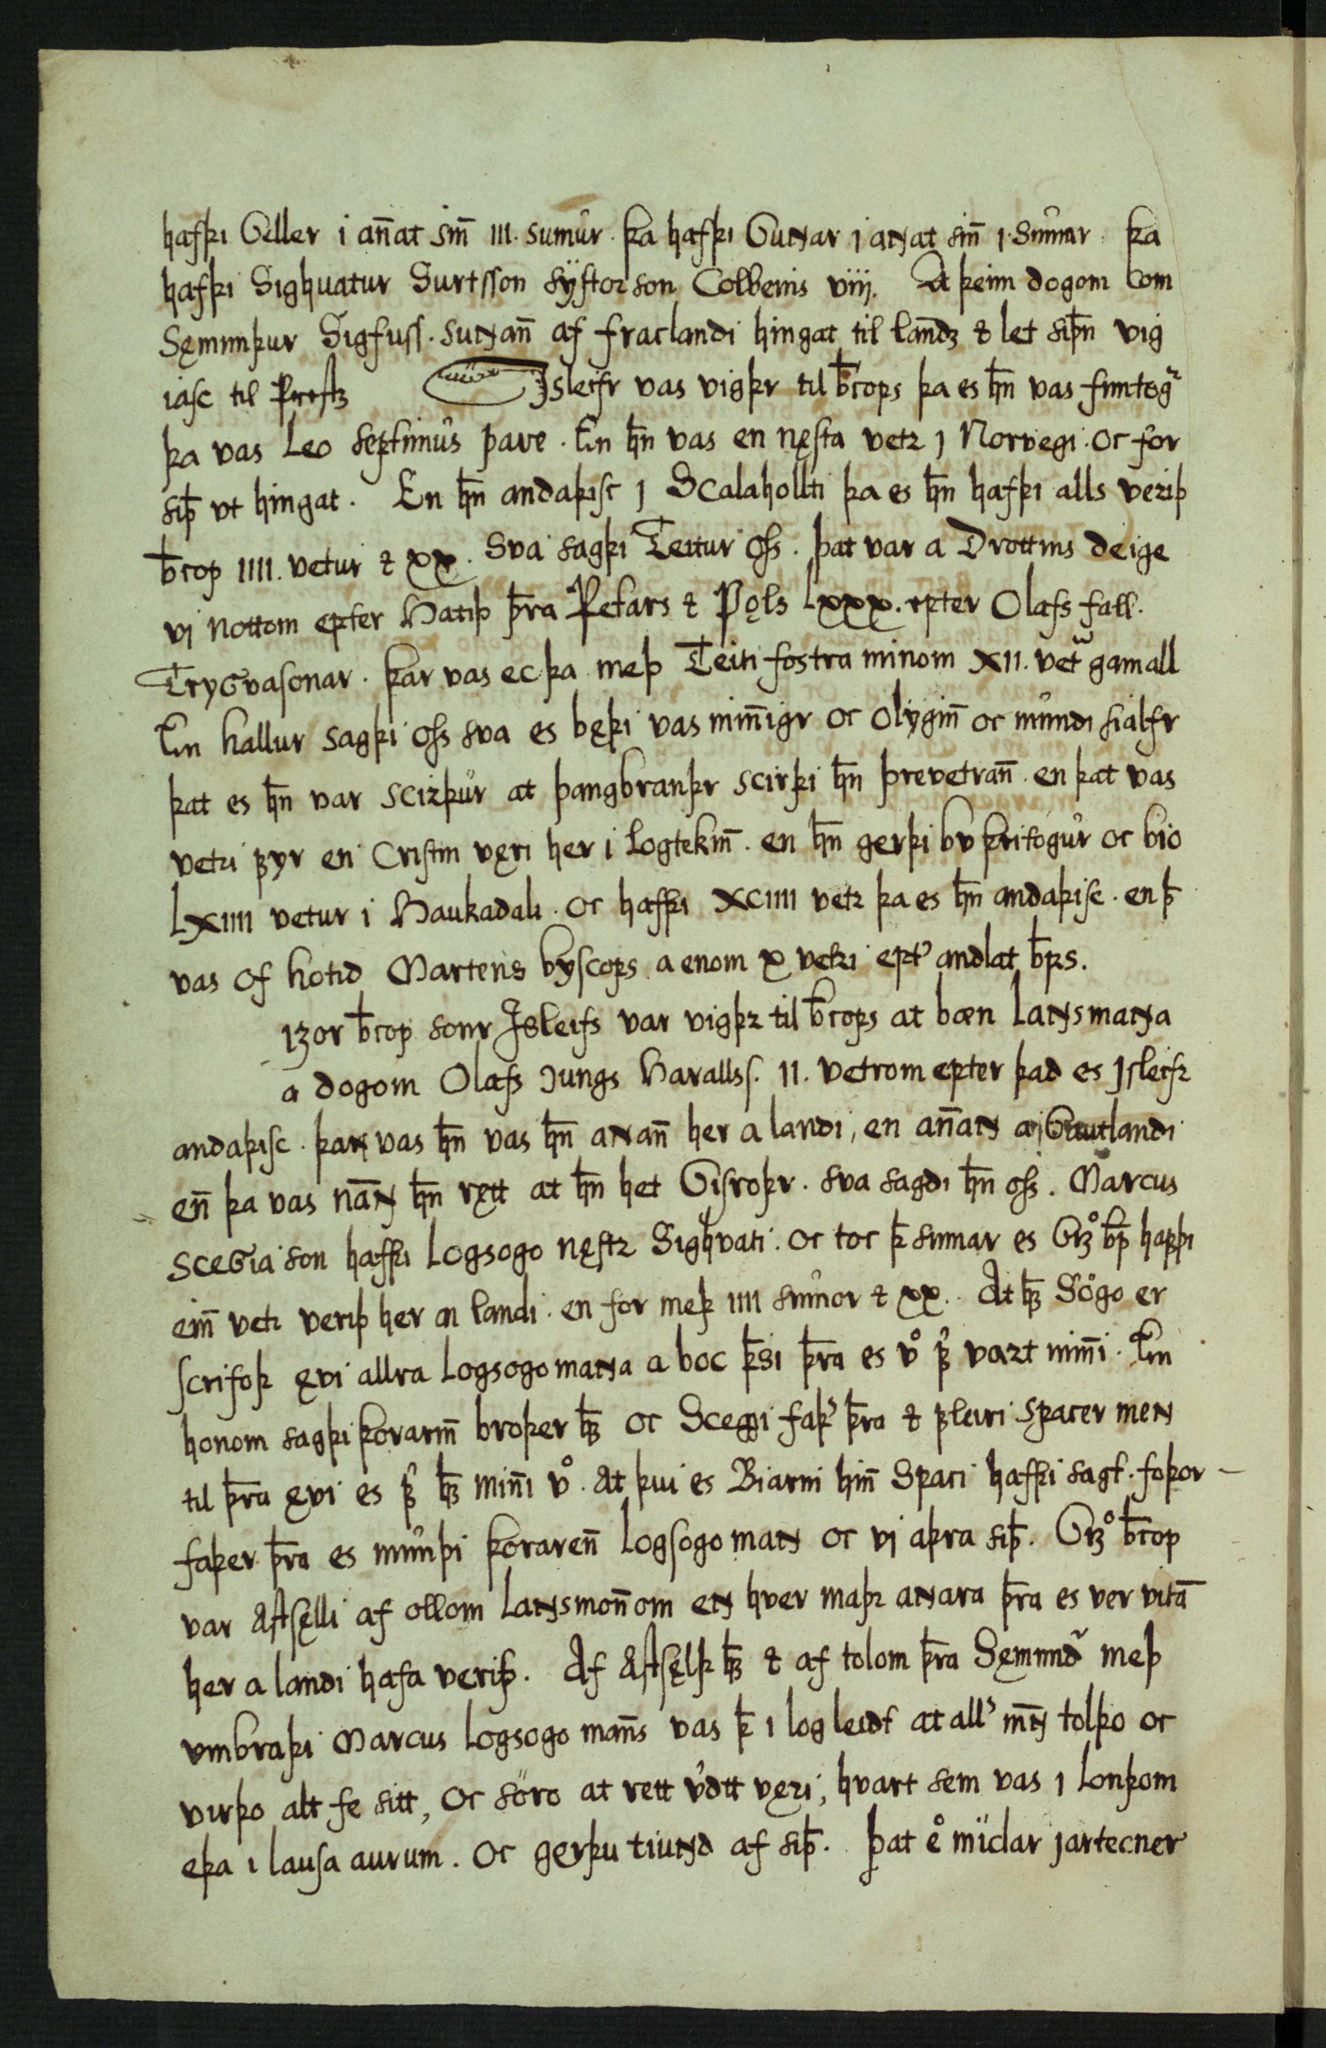 hafþı Geller i an̄at sın̄ III. sumur. þa hafþı GuNar j aNat sın̄ j. Sumar þa
hafþi Sighuatur Surtsson sÿstorson Colbeins viij. A þeim dogom com
Sęmunþur Sigfuss. suNan̄ af fraclandi hingat til landz & let siþn vig
iasc til Prestz Jsleifr vas vigþr til b̄cops þa es h̄n vas fimtog͛
þa vas Leo septimus pave. En h̄n vas en nęsta vetr j Norvegi. oc for
siþ vt hingat. En h̄n andaþisc j Scalahollti þa es h̄n hafþi alls veriþ
b̄cop IIII. vetur & xx. Sva sagþi Teitur oss. þat var a Drottins deige
vj nottom epter Hatiþ þ̄ra Petars & Pǫls Lxxx. epter Olafs fall.
TryGvasonar. þar vas ec þa meþ Teiti fostra minom XII. vet͛ gamall
En hallur sagþi oss sva es bęþi vas min̄igr oc olygin̄ oc mundi sialfr
þat es h̄n var scirþur at þangbranþr scirþi h̄n þrevetran̄. en þat vas
vetri þyr en Cristin vęri her i logtekin̄. en h̄n gerþi bv þritogur oc bio
LXIIII vetur i Haukadali. oc hafþi XCIIII vetr þa es h̄n andaþisc. en þ̄
vas of hotid Martens byscops a enom x vetri ept͛ andlat b̄ps.
izor b̄cop sonr Jsleifs var vigþr til b̄cops at bæn LaNsmaNa
a dogom Olafs Jungs Harallss. II. vetrom epter þad es Jsleifr
andaþisc. þaN vas h̄n vas h̄n aNan̄ her a landi, en an̄aN a Gautlandi
en̄ þa vas nāN h̄n rętt at h̄n het Gisroþr. sva sagdi h̄n oss. Marcus
sceGia son hafþi Logsogo nęstr Sighvati. oc toc þ̄ sumar es Gız͛ b̄p hafþi
ein̄ vetr veriþ her a landi. en for meþ IIII sumor & xx. At hs̄ Sögo er
scrifoþ ęvi allra Logsogomana a boc þ̄si þ̄ra es v͛ f͛ vart min̄i. En
honom sagþi þorarin̄ broþer hs̄ oc Sceggi faþ͛ þ̄ra & fleiri spacer meN
til þ̄ra ęvi es f͛ hs̄ min̄i v͛. At þui es Biarni hin̄ Spaci hafþi sagt. foþor-
faþer þ̄ra es munþi þoraren̄ Logsogo maN oc vj aþra siþ. Gız͛ b̄cop
var astsęlli af ollom LaNsmon̄om eN hver maþr aNara þ̄ra es ver vitā
her a landi hafa veriþ. Af astsęlþ hs̄ & af tolom þ̄ra Sęmund͛ meþ
vmbraþi Marcus Logsogo man̄s vas þ̄ i log leidt at all͛ m̄N tolþo oc
virþo alt fe sitt, oc söro at rett v͛dtt vęri, hvart sem vas i lonþom
eþa i lausa aurum. oc gerþu tiuNd af siþ. þat e͛ miclar jartecner